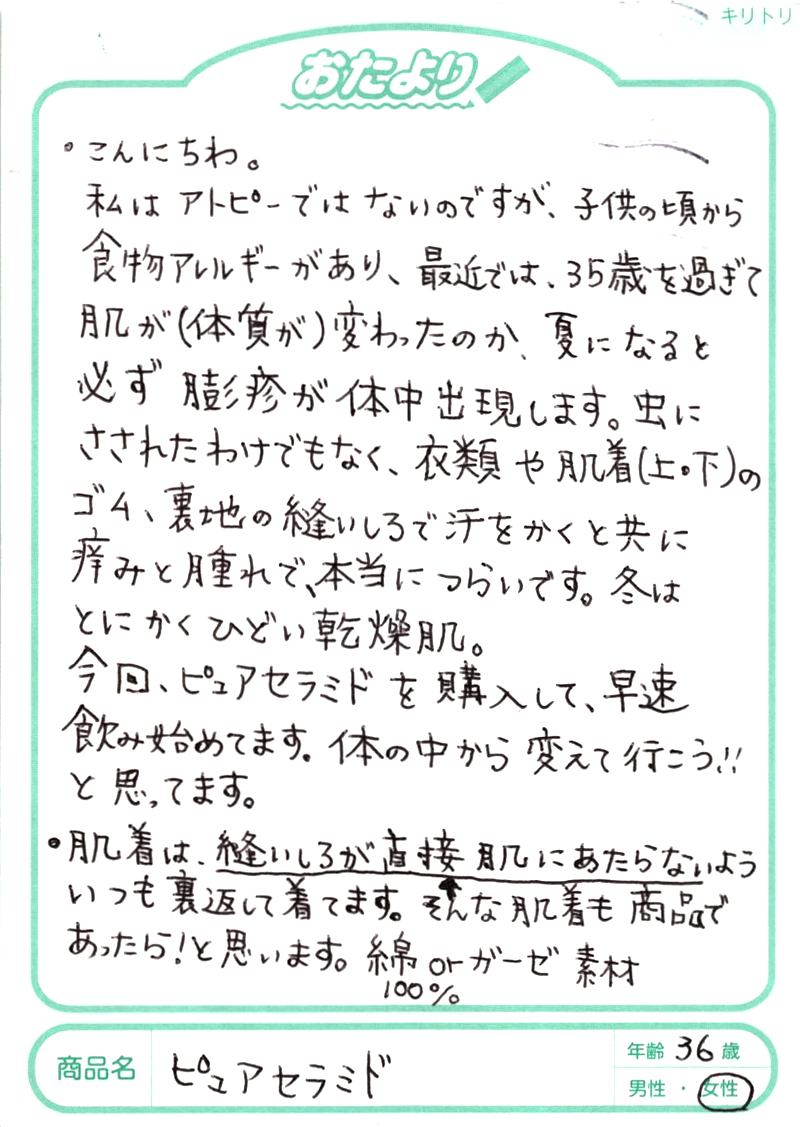 キリトリ
おたより
・こんにちわ。
私はアトピーではないのですが、子供の頃から
食物アレルギーがあり、最近では、35歳を過ぎて
肌が(体質が)変わったのか、夏になると
必ず膨疹が体中出現します。虫に
さされたわけでもなく、衣類や肌着(上・下)の
ゴム、裏地の縫いしろで汗をかくと共に
痒みと腫れで、本当につらいです。冬は
とにかくひどい乾燥肌。
今回、ピュアセラミドを購入して、早速
飲み始めてます。体の中から変えて行こう!!
と思ってます。
・肌着は、縫いしろが直接肌にあたらないよう
いつも裏返して着てます。そんな肌着も商品で
あったら!と思います。綿orガーゼ素材
100%
商品名 ピュアセラミド
年齢 36 歳
男性・女性